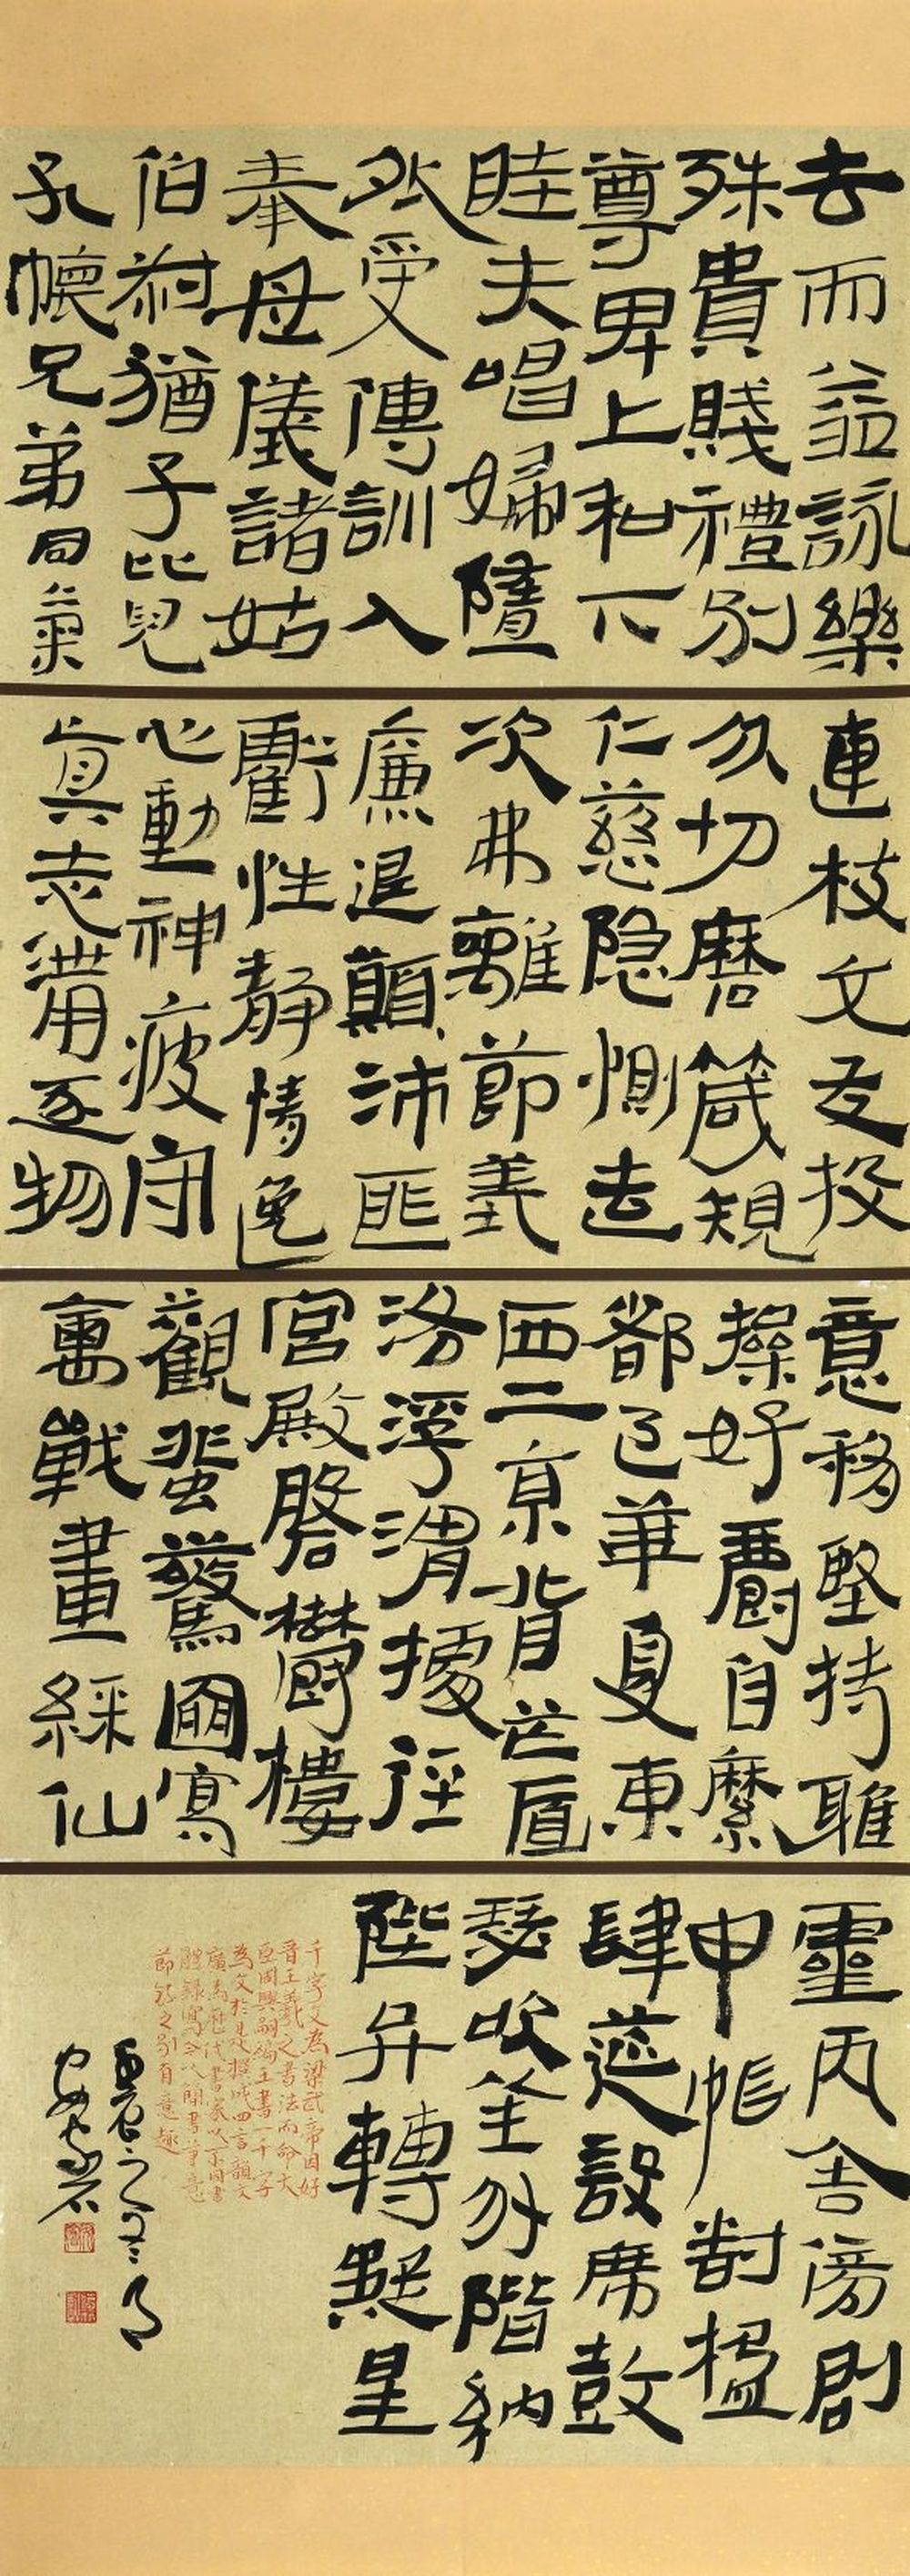 去而益詠樂
殊貴賤禮別
尊卑上和下
睦夫唱婦隨
外受傅訓入
奉母儀諸姑
伯叔猶子比兒
孔懷兄弟同氣
連枝交友投
分切磨箴規
仁慈隐惻造
次弗離節義
廉退顛沛匪
虧性靜情逸
心動神疲守
真志滿逐物
意移堅持雅
操好爵自縻
都邑華夏東
西二京背芒面
洛浮渭據徑
宮殿盤欝樓
觀蜚驚圖寫
禽獸畫綵仙
靈丙舍傍啟
甲帳對楹
肆筵設席鼓
瑟吹笙外階納
陛弁轉疑星
千字文為梁武帝因好
晉王羲之書法而命大
臣周興嗣編王書一千字
為文於是撰成四言韻文
廣為歷代書家以不同書
體錄寫今以簡書筆意
節錄之别有意趣